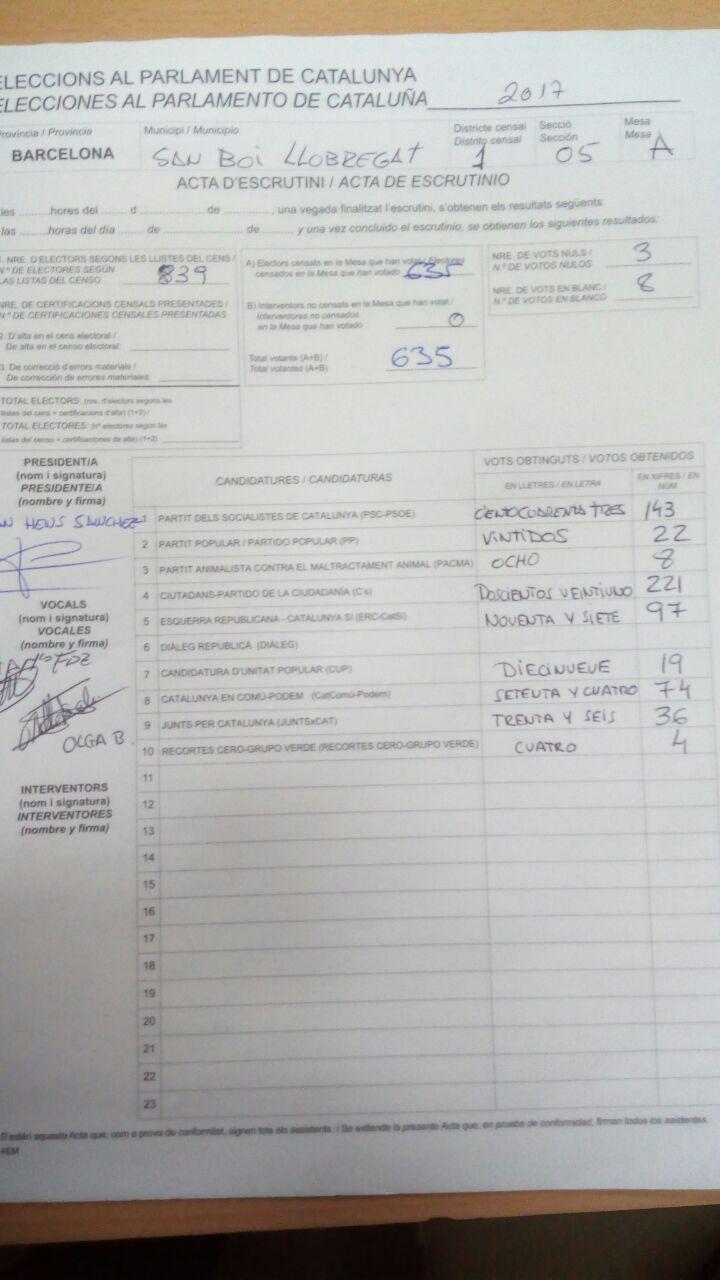 ELECCIONS AL PARLAMENT DE CATALUNYA
ELECCIONES AL PARLAMENTO DE CATALUÑA 2017
Provincia / Provincia
BARCELONA
Municipi / Municipio
SAN BOI LLOBREGAT
Districte censal
Distrito censal
1
Secció
Sección
05
Mesa
Mesa
A
ACTA D'ESCRUTINI / ACTA DE ESCRUTINIO
les ..........hores del ........ d .................... de ............, una vegada finalitzat l'escrutini, s'obtenen els resultats següents:
las ..........horas del día ........ de .................... de ........ y una vez concluido el escrutinio, se obtienen los siguientes resultados:
1. NRE. D'ELECTORS SEGONS LES LLISTES DEL CENS /
N.º DE ELECTORES SEGÚN
LAS LISTAS DEL CENSO 839
NRE. DE CERTIFICACIONS CENSALS PRESENTADES /
N.º DE CERTIFICACIONES CENSALES PRESENTADAS
2. D'alta en el cens electoral /
De alta en el censo electoral:
3. De correcció d'errors materials /
De corrección de errores materiales:
TOTAL ELECTORS: (nre. d'electors segons les
llistes del cens + certificacions d'alta) (1+2) /
TOTAL ELECTORES: (nº electores según las
listas del censo + certificaciones de alta) (1+2)
A) Electors censats en la Mesa que han votat / Electores
censados en la Mesa que han votado 635
B) Interventors no censats en la Mesa que han votat /
Interventores no censados
en la Mesa que han votado 0
Total votants (A+B) /
Total votantes (A+B) 635
NRE. DE VOTS NULS /
N.º DE VOTOS NULOS 3
NRE. DE VOTS EN BLANC /
N.º DE VOTOS EN BLANCO 8
PRESIDENT/A
(nom i signatura)
PRESIDENTE/A
(nombre y firma)
HENS SANCHEZ
VOCALS
(nom i signatura)
VOCALES
(nombre y firma)
FDZ
OLGA B
INTERVENTORS
(nom i signatura)
INTERVENTORES
(nombre y firma)
CANDIDATURES / CANDIDATURAS
VOTS OBTINGUTS / VOTOS OBTENIDOS
EN LLETRES / EN LETRA
EN XIFRES / EN NÚM
1 PARTIT DELS SOCIALISTES DE CATALUNYA (PSC-PSOE) CIENTOCUARENTA TRES 143
2 PARTIT POPULAR / PARTIDO POPULAR (PP) VINTIDOS 22
3 PARTIT ANIMALISTA CONTRA EL MALTRACTAMENT ANIMAL (PACMA) OCHO 8
4 CIUTADANS-PARTIDO DE LA CIUDADANÍA (C's) DOSCIENTOS VEINTIUNO 221
5 ESQUERRA REPUBLICANA - CATALUNYA SÍ (ERC-CatSí) NOVENTA Y SIETE 97
6 DIÀLEG REPUBLICÀ (DIÀLEG)
7 CANDIDATURA D'UNITAT POPULAR (CUP) DIECINUEVE 19
8 CATALUNYA EN COMÚ-PODEM (CatComú-Podem) SETENTA Y CUATRO 74
9 JUNTS PER CATALUNYA (JUNTSxCAT) TRENTA Y SEIS 36
10 RECORTES CERO-GRUPO VERDE (RECORTES CERO-GRUPO VERDE) CUATRO 4
11
12
13
14
15
16
17
18
19
20
21
22
23
S'estén aquesta Acta que, com a prova de conformitat, signen tots els assistents. / Se extiende la presente Acta que, en prueba de conformidad, firman todos los asistentes.